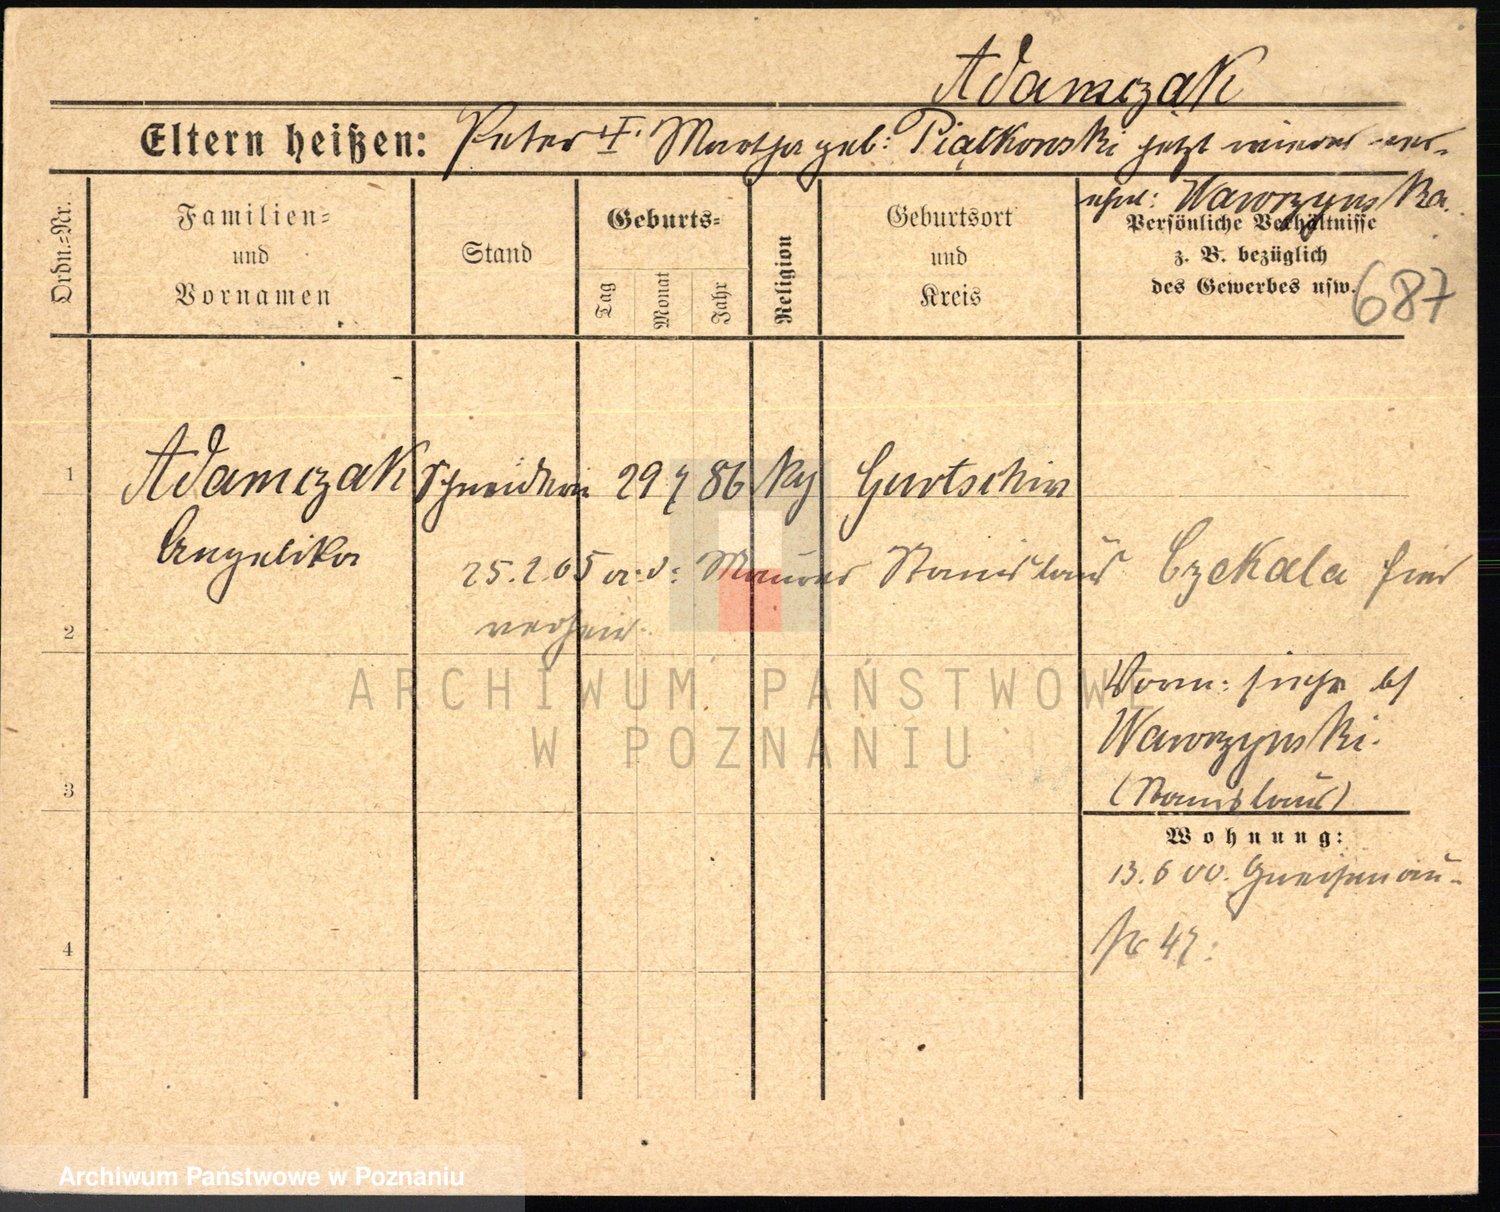 Adamczak
Eltern heißen: Peter Martha geb: Piątkowski jetzt wieder ver-
ehel: Wawrzynska.
Ordn.-Nr.
Familien- und Vornamen
Stand
Geburts-
Tag
Monat
Jahr
Religion
Geburtsort und Kreis
Persönliche Verhältnisse
z. B. bezüglich
des Gewerbes usw.
687
1
Adamczak Schneiderin 29 7 86 kg Gurtschin
Angelika
25.2.05 a.d: Maurer Stanislaus Czekala hier
verheir.
2
Vorm: siehe bei
Wawrzynski.
(Stanislaus)
3
Wohnung:
13.6 00. Gneisenau-
str 47.
4
ARCHIWUM PAŃSTWOWE
W POZNANIU
Archiwum Państwowe w Poznaniu